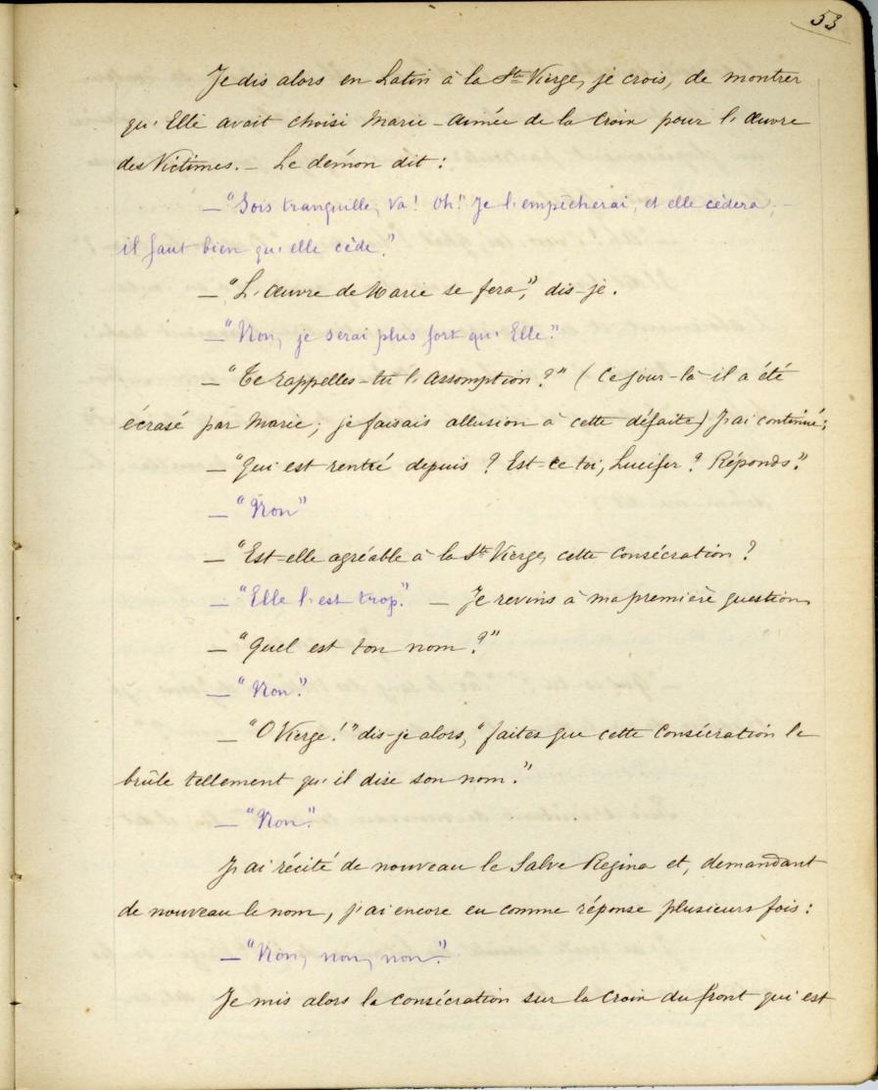 53
Je dis alors en Latin à la Ste Vierge, je crois, de montrer
qu'Elle avait choisi Marie-Aimée de la Croix pour l'Œuvre
des Victimes. — Le démon dit :
— "Sois tranquille, va! Oh! Je l'empêcherai, et elle cèdera, —
il faut bien qu'elle cède."
— "L'Œuvre de Marie se fera", dis-je.
— "Non, je serai plus fort qu'Elle."
— "Te rappelles-tu l'Assomption?" (Ce jour-là il a été
écrasé par Marie; je faisais allusion à cette défaite) J'ai continué:
— "Qui est rentré depuis? Est-ce toi, Lucifer? Réponds."
— "Non"
— "Est-elle agréable à la Ste Vierge, cette Consécration?
— "Elle l'est trop." — Je revins à ma première question
— "Quel est ton nom?"
— "Non."
— "O Vierge!" dis-je alors, "faites que cette Consécration le
brûle tellement qu'il dise son nom."
— "Non."
J'ai récité de nouveau le Salve Regina et, demandant
de nouveau le nom, j'ai encore eu comme réponse plusieurs fois :
— "Non, non, non."
Je mis alors la consécration sur la Croix du front qui est